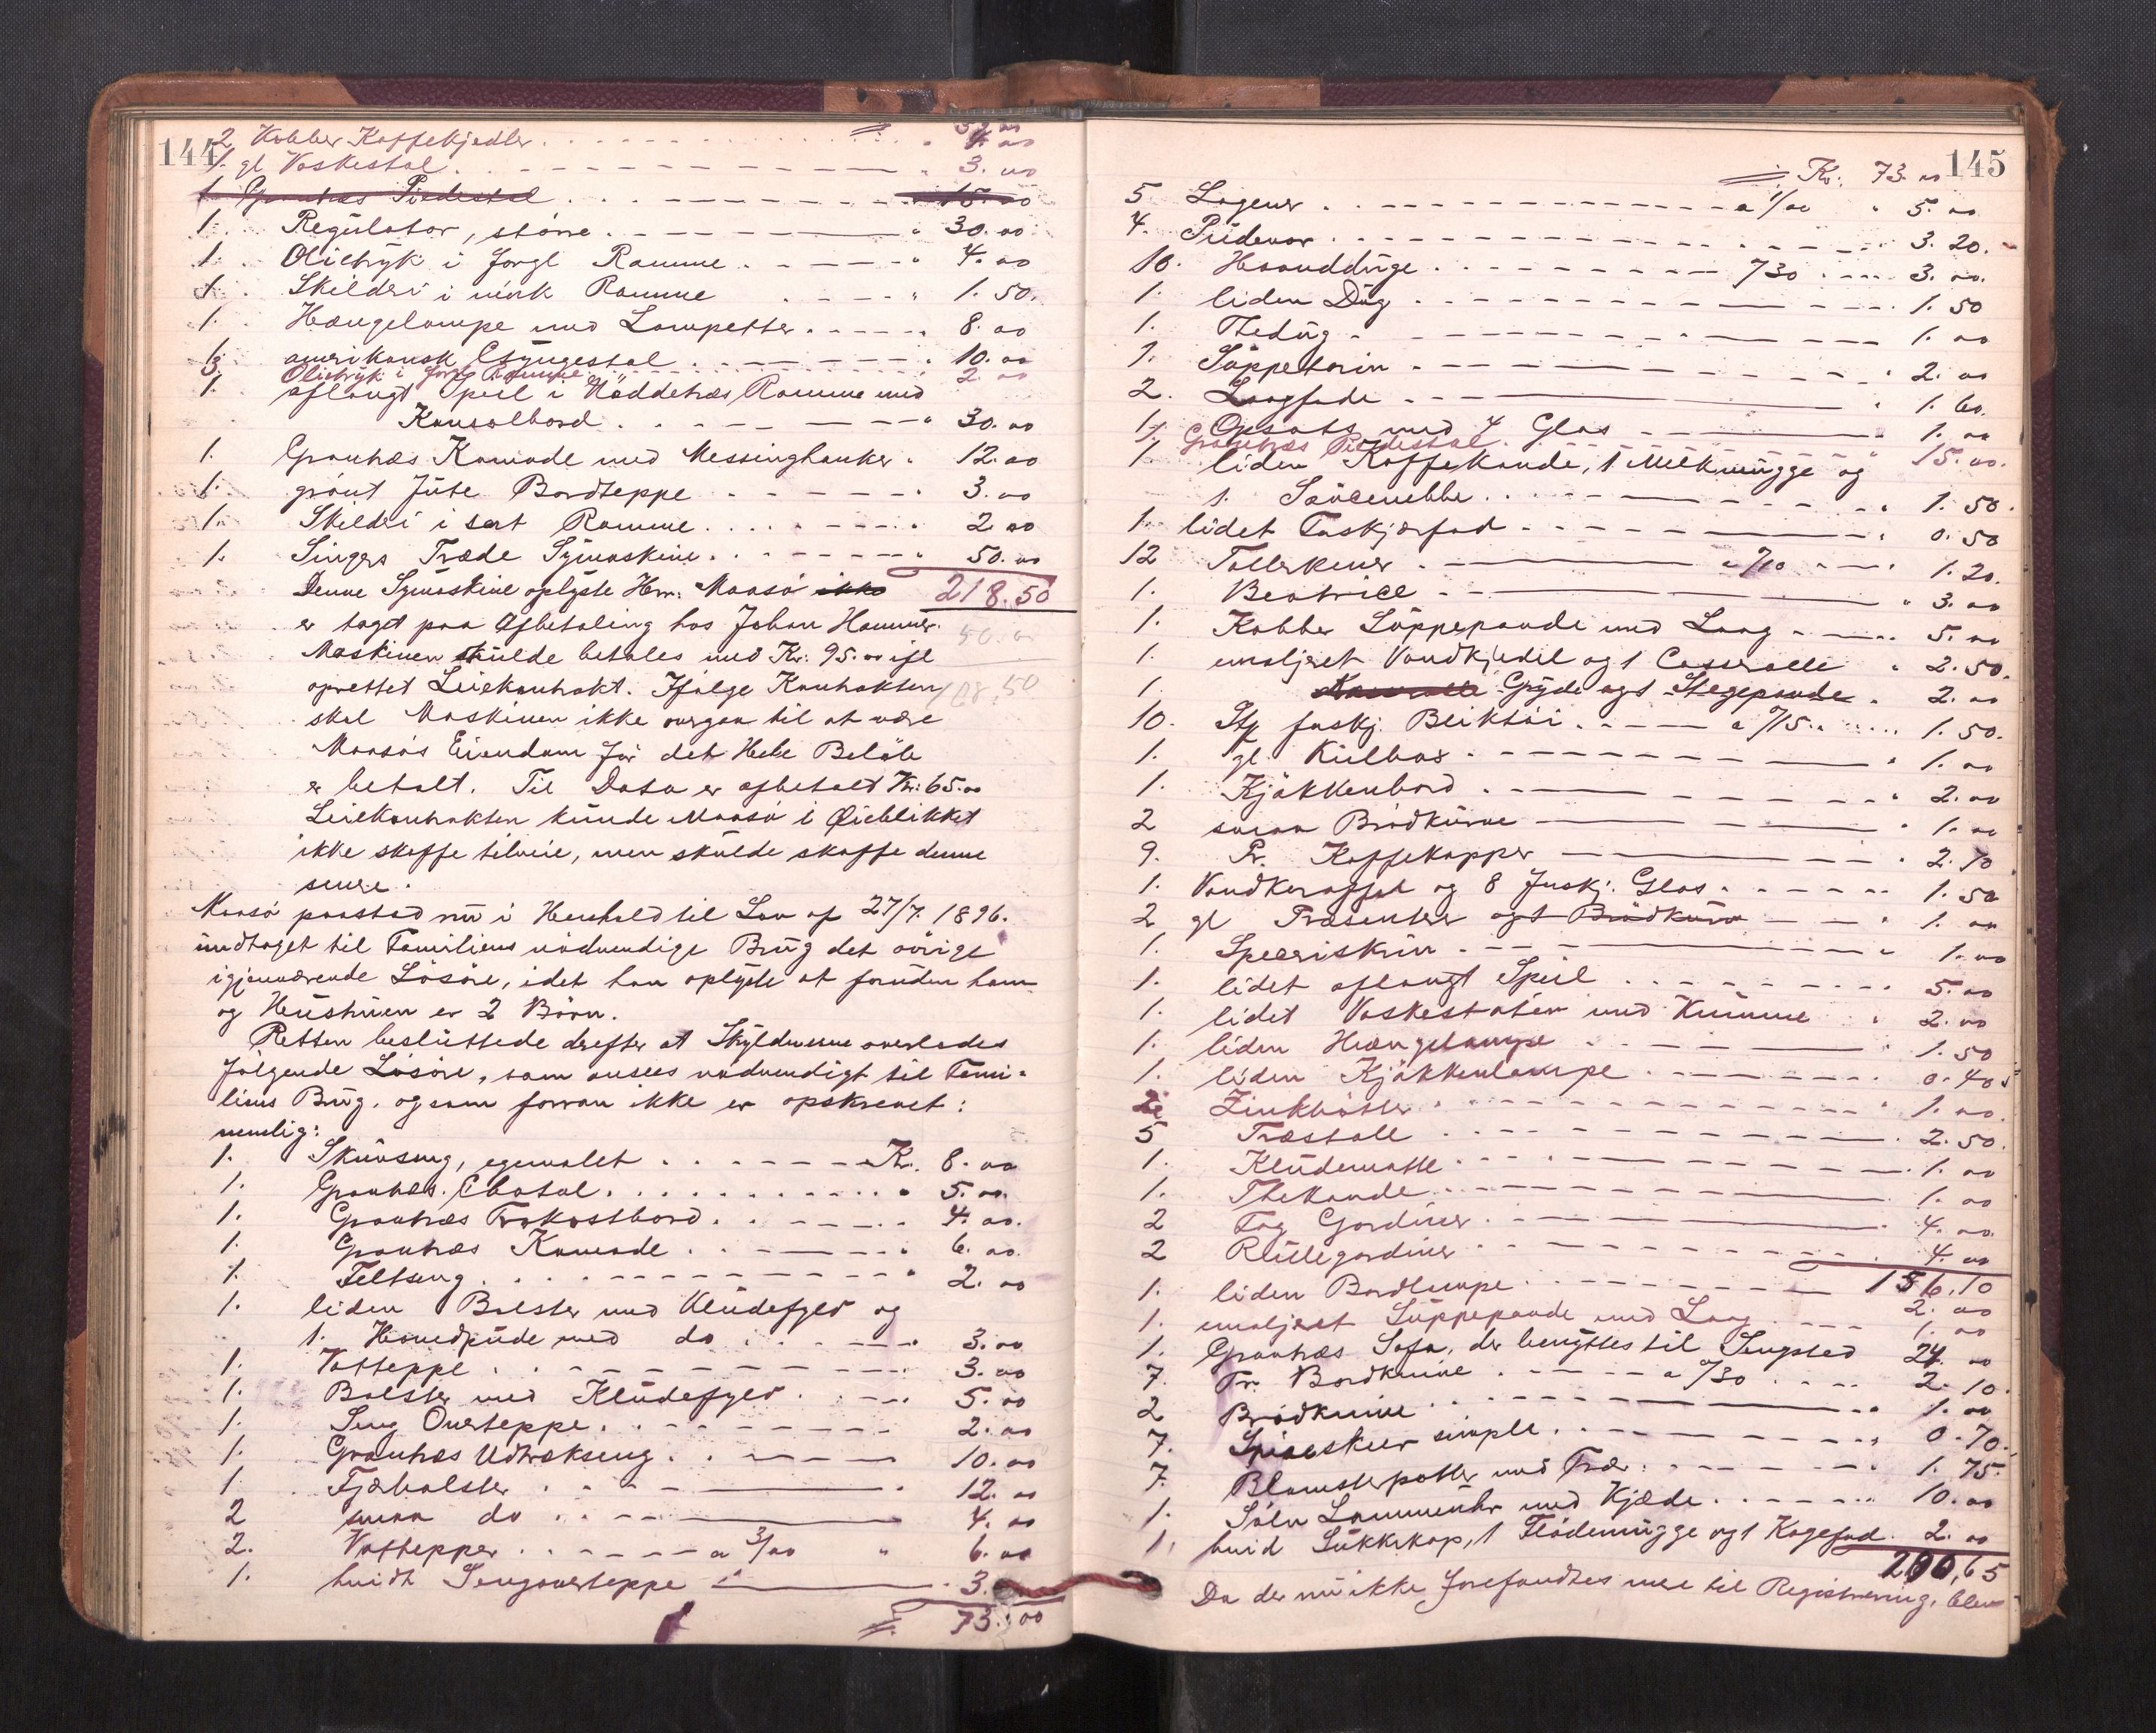 144
2 Kobber Kaffekjedler " 4.00
1. gl Vaskestol " 3.00
1. Grantræs Piedestal 15.00
1. Regulator, större " 30.00
1. Olietryk i forgl Ramme " 4.00
1. Skilderi i Ramme " 1.50.
1. Hængelampe med Lampetter " 8.00
1. amerikansk Gyngestol " 10.00
3. Olietryk i forg Ramme 2.00
1. aflangt Speil i Nöddetræs Ramme med
Konsolbord " 30.00
1. Grantræs Komode med Messinghanker " 12.00
1. grönt Jute Bordteppe " 3.00
1. Skilderi i sort Ramme " 2.00
1. Singers Træde Symaskine " 50.00
218.50
Denne Symaskine oplyste Herr Maasö ikke
er taget paa Afbetaling hos Johan Hammer.
50.00
Maskinen skulde betales med Kr: 95.00 ifl
oprettet Leiekontrakt. Ifölge Kontrakten
168,50
skal Maskinen ikke overgaa til at være
Maasös Eiendom för det Hele Belöb
er betalt. Til Dato er afbetalt Kr: 65.00
Leiekontrakten kunde Maasö i Öieblikket
ikke skaffe tilveie, men skulde skaffe denne
senere.
Maasö paastod nu i Henhold til Lov af 27/7. 1896.
undtaget til Familiens nödvendige Brug det övrige
igjenværende Lösöre, idet han oplyste at foruden ham
og Hustruen er 2 Börn.
Retten besluttede derefter at Skyldnerne overlades
fölgende Lösöre, som ansees nödvendigt til Fami-
liens Brug. og som forran ikke er opskrevet:
nemlig:
1. Skuvseng, egemalet Kr. 8.00
1. Grantræs Chatol " 5.00.
1. Grantræs Frokostbord 4.00.
1. Grantræs Komode " 6.00.
1. Feltseng " 2.00
1. liden Bolster med Kludefyld og
1. Hovedpude med do 3.00
1. Vatteppe 3.00
1. Bolster med Kludefyld 5.00
1. Seng Overteppe 2.00
1. Grantræs Udtrækseng 10.00
1 Fjærbolster 12.00
2 smaa do 4.00
2. Vattepper a 3/00 " 6.00
1. hvidt Sengoverteppe 3.
73.00
145
Kr: 73.00
5 Lagener a 1/00 " 5.00
4. Pudevar 3.20.
10. Haandduge 7/30 3.00.
1. liden Dug 1.50
1. Thedug 1.00
1. Suppeterin " 2.00
2. Langfade " 1.60.
1. Opsats med 4 Glas 1.00
1. Grantræs Piedestal 15.00.
1 liden Kaffekande, 1 Melkmugge og
1. Saucenebbe 1.50.
1. lidet Fuskjærfad 0.50
12 Tallerkener a /10 1.20.
1. Beatrice " 3.00
1. Kobber Suppepande med Laag 5.00
1. emaljeret Vandkjedel og 1 Casserolle " 2.50.
1. Gryde og 1 Stegepande 2.00
10. Stk forskj. Bliktöi a /15 1.50.
1. gl. Kulbox 1.00
1. Kjökkenbord " 2.00
2 smaa Brödkurve " 1.00
9. Pr. Kaffekopper " 2.70
1. Vandkaraffel og 8 forskj. Glas 1.50
2 gl Præsenter og 1 Brödkurv 1.00
1. Speeriskrin 1.00
1. lidet aflangt Speil 5.00
1. lidet Vaskestativ med Kumme " 2.00
1. liden Hængelampe " 1.50
1. liden Kjökkenlampe 0.40
2 Zinkbötter " 1.00
5 Træstole 2.50.
1. Kludematte 1.00
1. Thekande 1.00
2 Fag Gardiner 4.00
2 Rullegardiner 4.00
156.10
1. liden Bordlampe 2.00
1. emaljeret Suppepande med Laag 1.00
1. Grantræs Sofa, der benyttes til Sengsted 24.00
7. Pr. Bordknive a /30 2.10.
2 Brödknive 1.00
7. Spiseskeer simple 0.70.
7. Blomsterpotter med Trær 1.75.
1. Sölv Lommeuhr med Kjæde 10.00
1. hvid Sukkkop, 1 Flödemugge og 1 Kagefad 2.00
200,65
Da der nu ikke forefandtes mere til Registrering, blev